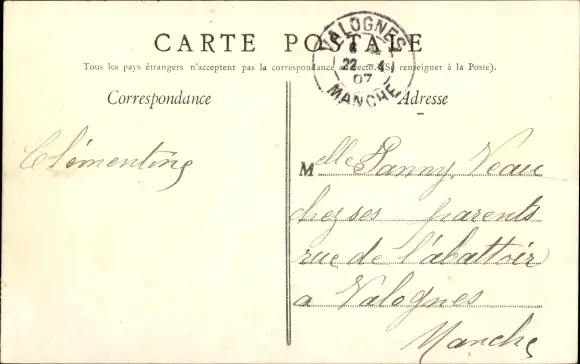 CARTE POSTALE
VALOGNES
22 -4
07
MANCHE
Tous les pays étrangers n'acceptent pas la correspondance au recto. (Se renseigner à la Poste).
Correspondance
Adresse
Clémentine
Melle Fanny Veau
chez ses parents
rue de l'abattoir
a Valognes
Manche